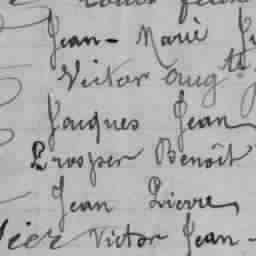 Jean-Marie
Victor Aug^te
Jacques Jean
Prosper Benoît
Jean Pierre
Victor Jean-